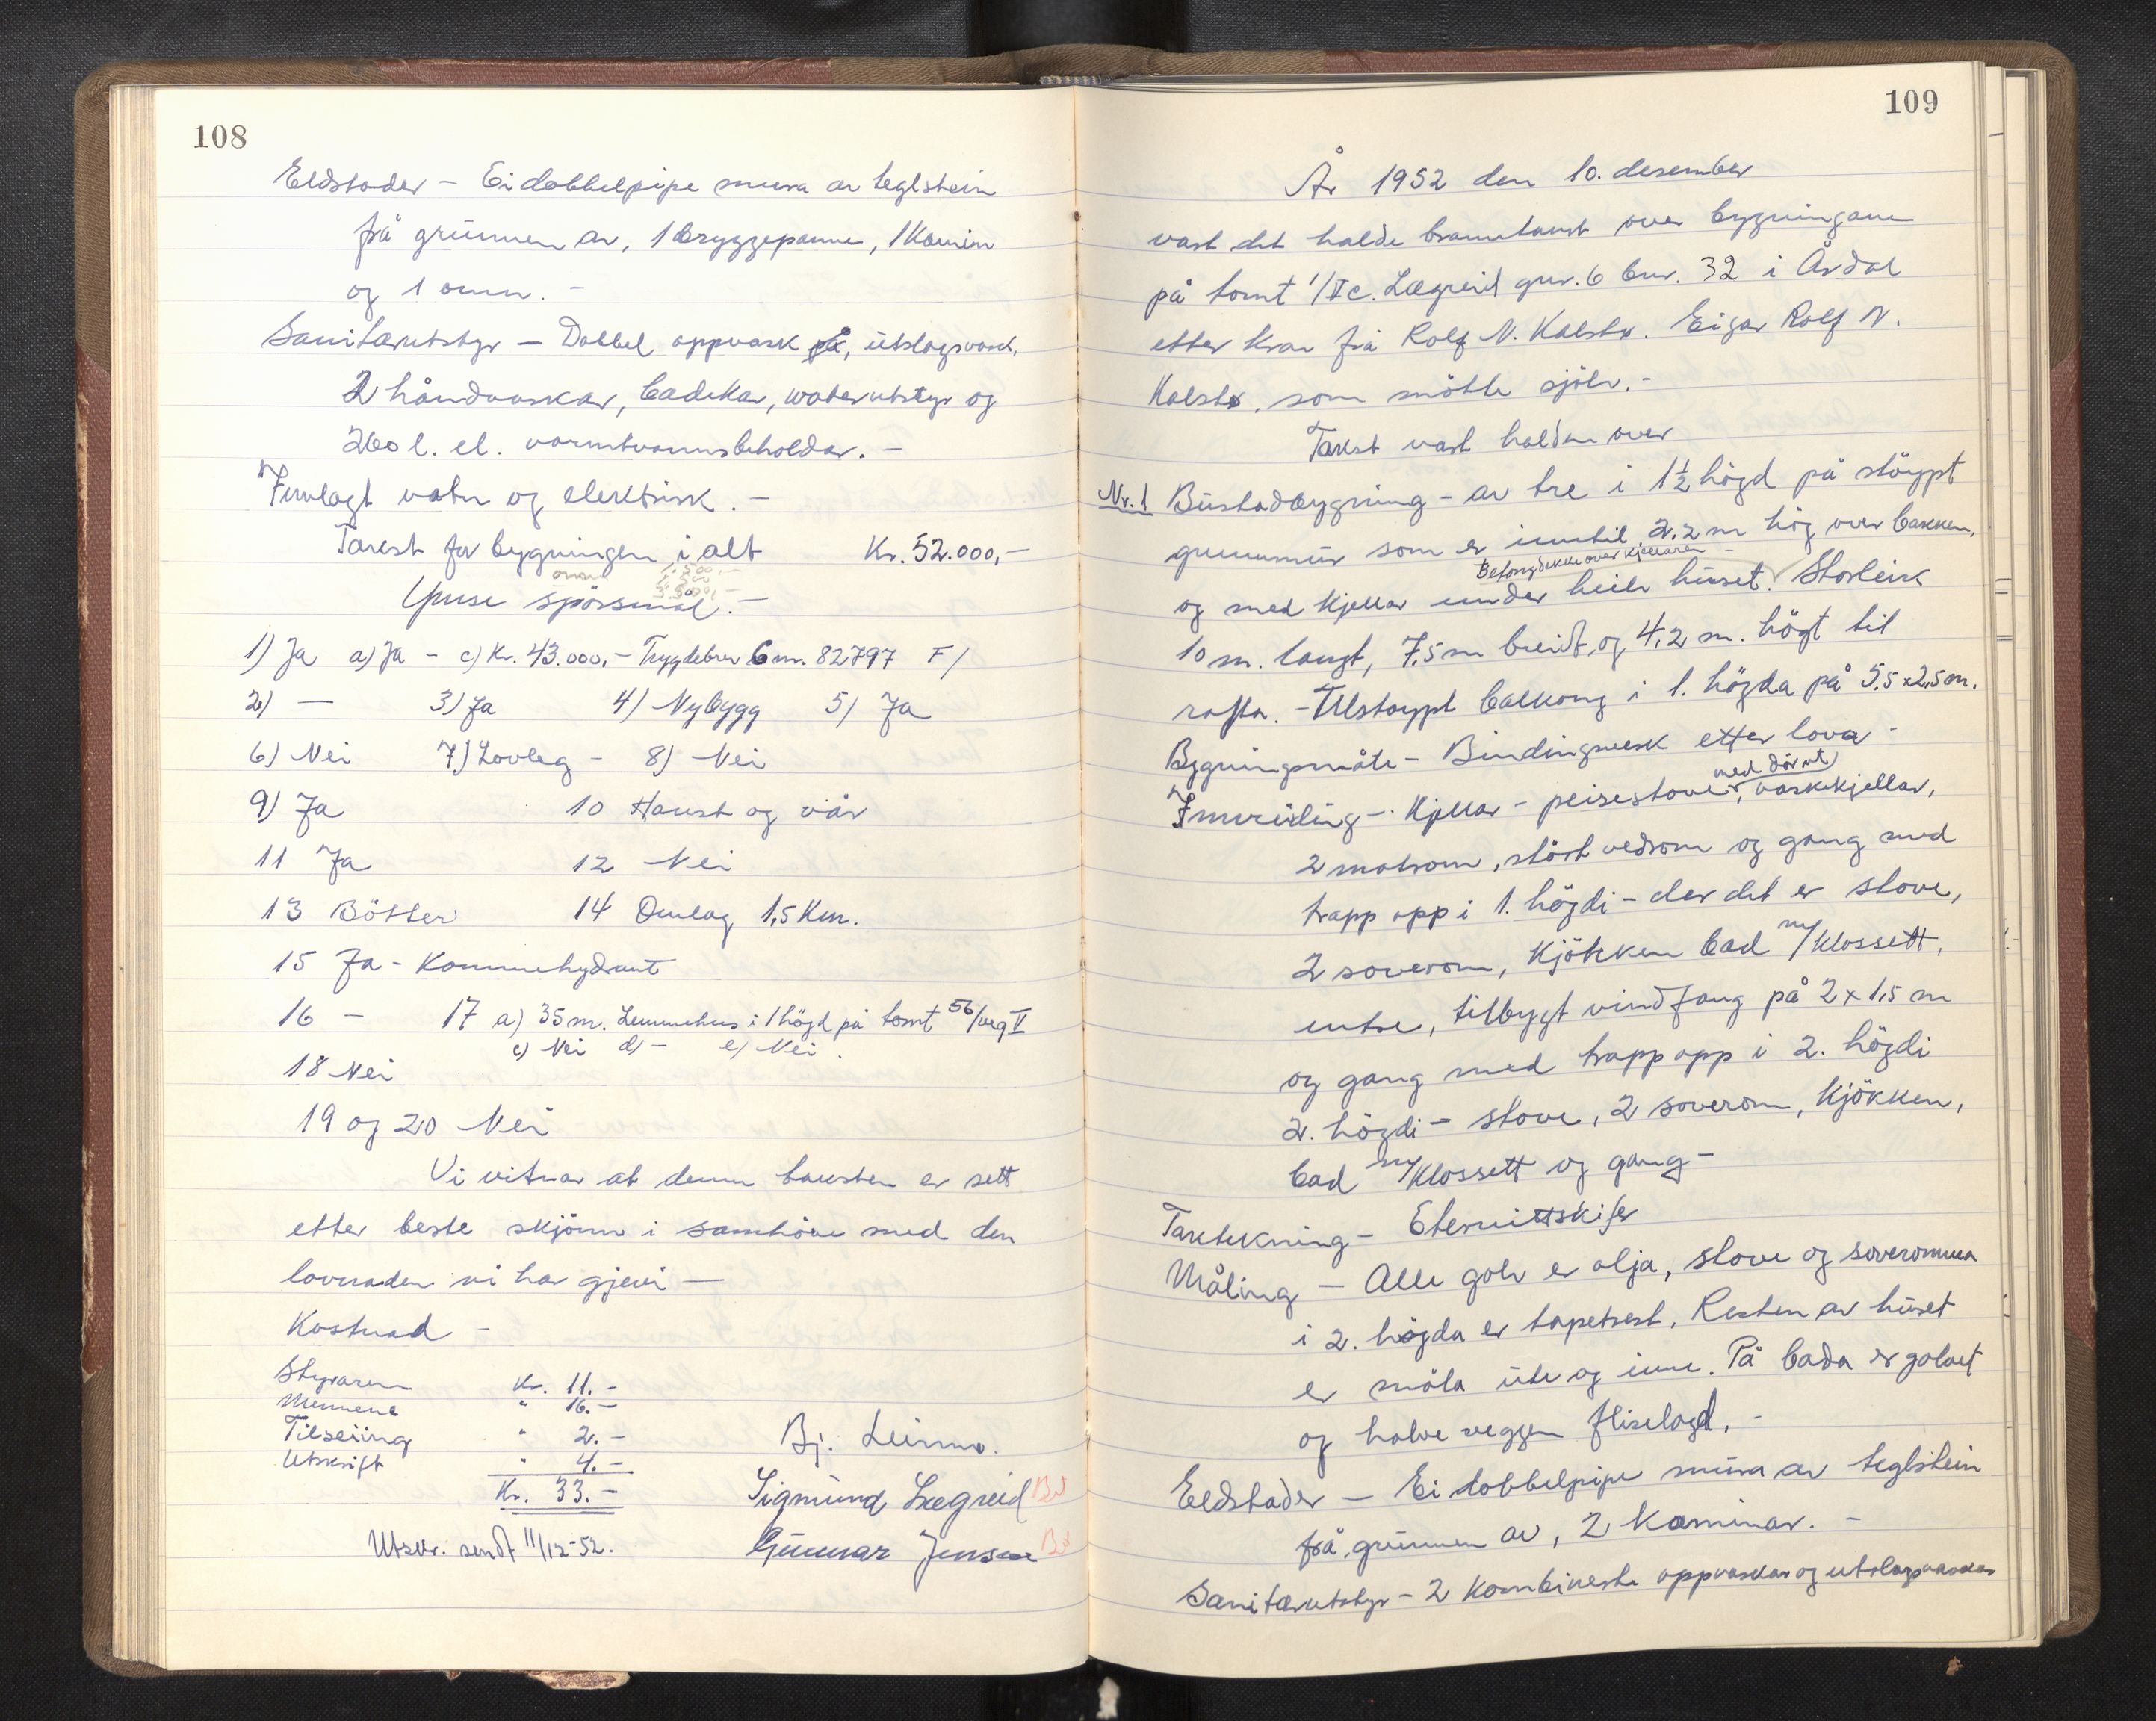 108
Eldstader - Ei dobbelpipe mura av teglstein
frå grunnen av, 1 bryggepanne, 1 Kamin
og 1 omn. -
Sanitærutstyr - Dobbel oppvask, utslagsvask,
2 håndvaskar, badekar, waterutstyr og
260 l. el. varmtvannsbeholdar. -
Innlagt vatn og elektrisk. -
Takst for bygningen i alt Kr. 52.000,-
1.500,-
1.500
3.500,-
Ymse spörsmål. -
1) Ja a) Ja - c) Kr. 43.000,- Trygdebrev nr. 82797 F/
2) - 3) Ja 4) Nybygg 5) Ja
6) Nei 7) Lovleg - 8) Nei
9) Ja 10 Haust og vår
11 Ja 12 Nei
13 Bötter 14 Omlag 1,5 Km.
15 Ja - Kommehydrant
16 - 17 a) 35 m. Lemmehus i 1 högd på tomt 56/veg V
c) Nei d) - e) Nei.
18 Nei
19 og 20 Nei
Vi vitnar at denne taksten er sett
etter beste skjönn i samhöve med den
lovnaden vi har gjevi -
Kostnad -
Styraren Kr. 11.-
Mennene " 16.-
Tilseiing " 2.-
Utskrift " 4.-
Kr. 33.-
Bj. Leirmo.
Sigmund Lægreid
Gunnar Jensen
Utskr. sendt 11/12-52.
109
År 1952 den 10. desember
vart det halde branntakst over bygningane
på tomt 1/I c. Lægreid gnr. 6 bnr. 32 i Årdal
etter krav frå Rolf N. Kalstø. Eigar Rolf N.
Kalstø, som mötte sjölv. -
Takst vart halden over
Nr. 1 Bustadbygning - av tre i 1½ högd på stöypt
grunnmur som er inntil 2.2 m hög over bakken,
Betongdekke over kjellaren -
og med kjellar under heile huset. Storleik
10 m. langt, 7,5 m breidt, og 4,2 m. högt til
rafta. - Tilstöypt balkong i 1. högda på 5.5 x 2,5 m.
Bygningsmåte - Bindingsverk etter lova -
med dör ut
Innreiing - Kjellar - peisestove, vaskekjellar,
2 matrom, stört vedrom og gang med
trapp opp i 1. högdi - der det er stove,
2 soverom, Kjökken bad m/Klossett,
entre, tilbygt vindfang på 2 x 1,5 m
og gang med trapp opp i 2. högdi
2. högdi - stove, 2 soverom, Kjökken,
bad m/Klossett og gang -
Taktekning - Eternittskifer
Måling - Alle golv er olja, stove og soveromma
i 2. högda er tapetsert, Resten av huset
er måla ute og inne. På bada er golvet
og halve veggen fliselagd. -
Eldstader - Ei dobbelpipe mura av teglstein
frå grunnen av, 2 Kaminar. -
Sanitærutstyr - 2 Kombinerte oppvaskar og utslagsvaskar